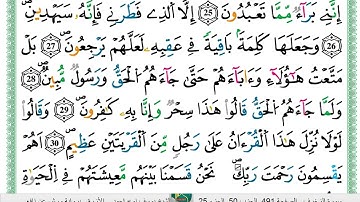 إِنَّنِے بَرَآءٞ مِّمَّا تَعْبُدُونَ 25 إِلَّا اَلذِے فَطَرَنِے فَإِنَّهُۥ سَيَهْدِينِۖ
26 وَجَعَلَهَا كَلِمَةَۢ بَاقِيَةٗ فِے عَقِبِهِۦ لَعَلَّهُمْ يَرْجِعُونَۖ 27 بَلْ
مَتَّعْتُ هَٰٓؤُلَآءِ وَءَابَآءَهُمْ حَتَّىٰ جَآءَهُمُ اُلْحَقُّ وَرَسُولٞ مُّبِينٞۖ 28
وَلَمَّا جَآءَهُمُ اُلْحَقُّ قَالُواْ هَٰذَا سِحْرٞ وَإِنَّا بِهِۦ كَٰفِرُونَۖ 29 وَقَالُواْ
لَوْلَا نُزِّلَ هَٰذَا اَلْقُرْءَانُ عَلَىٰ رَجُلٖ مِّنَ اَلْقَرْيَتَيْنِ عَظِيمٍۖ 30 اَهُمْ
يَقْسِمُونَ رَحْمَتَ رَبِّكَۖ نَحْنُ قَسَمْنَا بَيْنَهُم مَّعِيشَتَهُمْ فِے اِلْحَيَوٰةِ
الصفحة 491 الحزب 50 الجزء 25